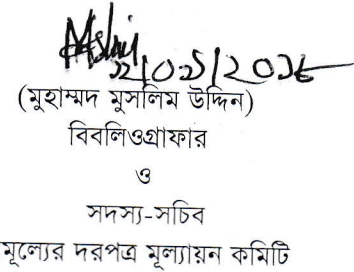 (মুহাম্মদ মুসলিম উদ্দিন)
বিবলিওগ্রাফার
ও
সদস্য-সচিব
মূল্যের দরপত্র মূল্যায়ন কমিটি